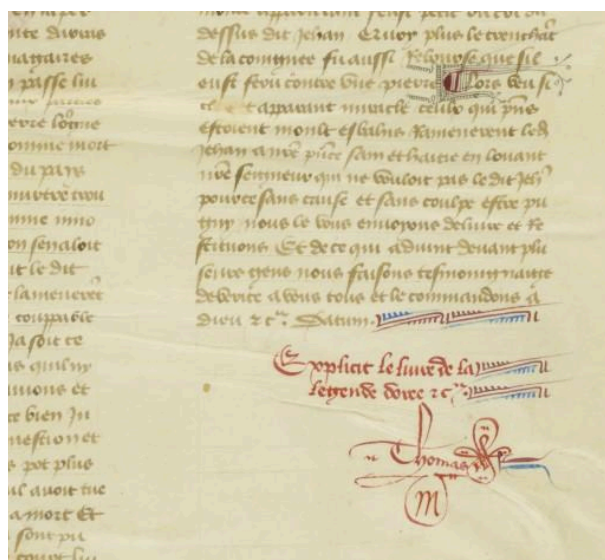 nte divers
magaires
n passe lui
omme mort
du pays
meurtre trou
mme inno
on senaloit
it le dit
coupable
Ja soit ce
as quil ny
auions et
ce bien Ju
question et
s pot plus
il auoit tue
a mort Et
sont pu
dessus dit Jehan Ervoy plus le trenchāt
de la coignee fu aussi Relouyse que sil
eust feru contre vne pierre Alors veu si
cler et apparant miracle ceulx qui pn̄s
estoient moult esbahis Ramenerent led̄
Jehan a nr̄e pn̄ce sain et haitie en louant
nr̄e seigneur qui ne vouloit pas le dit Jeh̄
pource sans cause et sans coulpe estre pu
gny nous le vous enuoyons deliure et Re
stituons Et de ce qui aduint deuant plu
seurs gens nous faisons tesmoingnance
de verite a vous tous et le commandons a
dieu ⁊ cꝰ. Datum
Explicit le liure de la
legende doree ⁊ cꝰ
Thomas
M